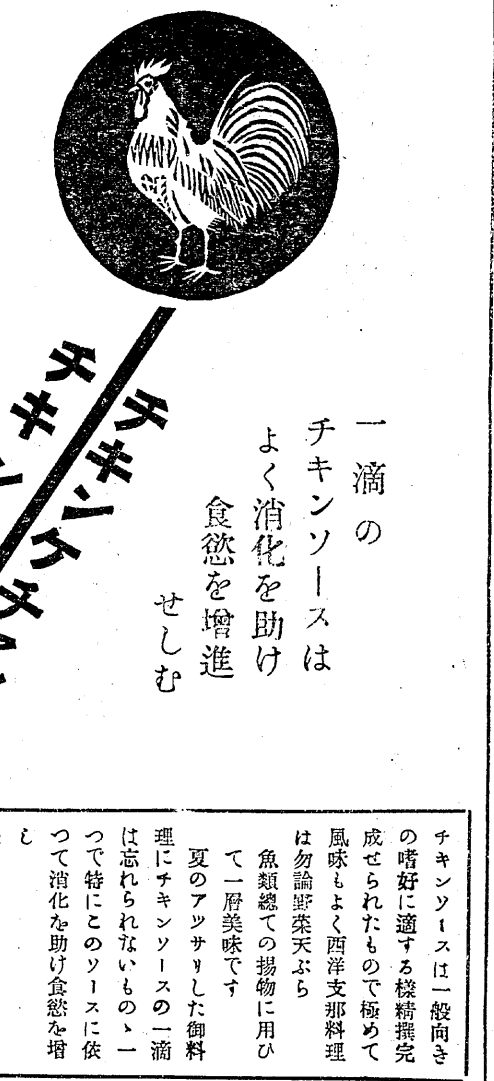 一滴の
チキンソースは
よく消化を助け
食慾を增進
せしむ
チキンケチ
チキン
チキンソースは一般向き
の嗜好に適する樣精撰完
成せられたもので極めて
風味もよく西洋支那料理
は勿論野菜天ぷら
魚類總ての揚物に用ひ
て一層美味です
夏のアツサリした御料
理にチキンソースの一滴
は忘れられないものゝ一
つで特にこのソースに依
つて消化を助け食慾を增
し